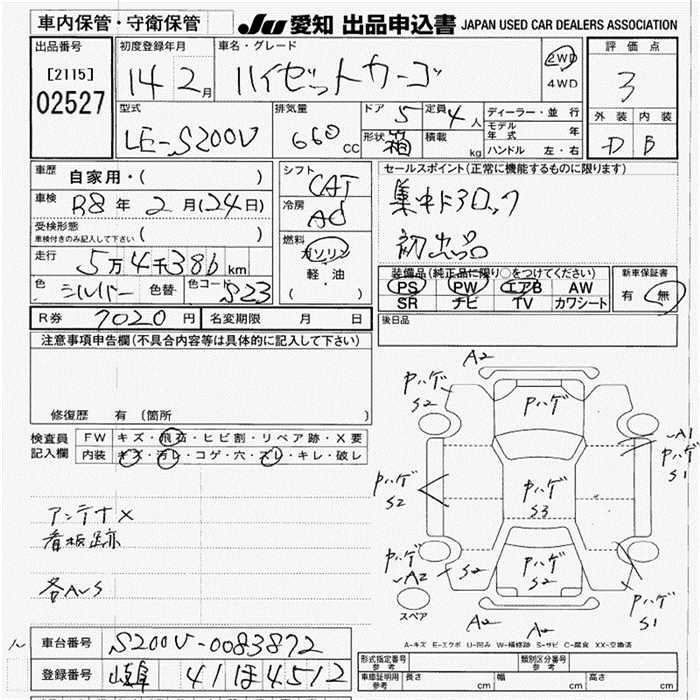 車内保管・守衛保管
JU 愛知 出品申込書 JAPAN USED CAR DEALERS ASSOCIATION
出品番号
[2115]
02527
初度登録年月
14 2月
車名・グレード
ハイゼットカーゴ
2WD
4WD
評価点
3
外装 内装
D B
型式
LE-S200V
排気量
660 CC
ドア 5
定員 4人
形状 箱
積載 kg
ディーラー・並行
モデル年式 年
ハンドル 左・右
車歴 自家用・( )
車検 R8年 2月(24日)
受検形態
車検付きのみ記入して下さい ( )
走行 5万4千386km
色 シルバー 色替 色コード S23
シフト CAT
冷房 AC
燃料
ガソリン
軽・油
( )
セールスポイント(正常に機能するものに限ります)
集中ドアロック
初出品
装備品(純正品に限り○をつけてください)
PS PW エアB AW
SR ナビ TV カワシート
新車保証書
有 無
R券 7020円 名変期限 月 日
後日品
注意事項申告欄(不具合内容等は具体的に記入して下さい)
修復歴 有(箇所 )
検査員
記入欄
FW キズ・飛石・ヒビ割・リペア跡・X要
内装 キズ・汚レ・コゲ・穴・スレ・キレ・破レ
アンテナX
看板跡
各A・S
A2
ヤハゲ
S2
ヤハゲ
A1
ヤハゲ
S1
ヤハゲ
S2
ヤハゲ
S3
ヤハゲ
A2
S2
ヤハゲ
S2
ヤハゲ
S1
スペア
A2
A2
A-キズ E-エクボ U-凹み W-補修跡 S-サビ C-腐食 XX-交換済
車台番号 S200V-0083872
登録番号 岐阜 41ほ4512
形式指定番号
参考
類別区分番号
参考
車庫証明用
参考
長さ cm 幅 cm 高さ cm